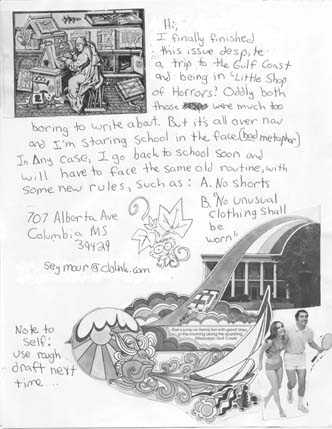 Hi,
I finally finished
this issue despite
a trip to the Gulf Coast
and being in "Little Shop
of Horrors." Oddly both
those were much too
boring to write about. But it's all over now
and I'm staring school in the face (bad metaphor)
In any case, I go back to school soon and
will have to face the same old routine, with
some new rules, such as: A. No shorts
B. "No unusual
clothing shall
be
worn"
707 Alberta Ave
Columbia MS
39429
seymour@cblink.com
Get a jump on family fun with great days
in the morning along the sparkling
Mississippi Gulf Coast!
Note to
self:
use rough
draft next
time....